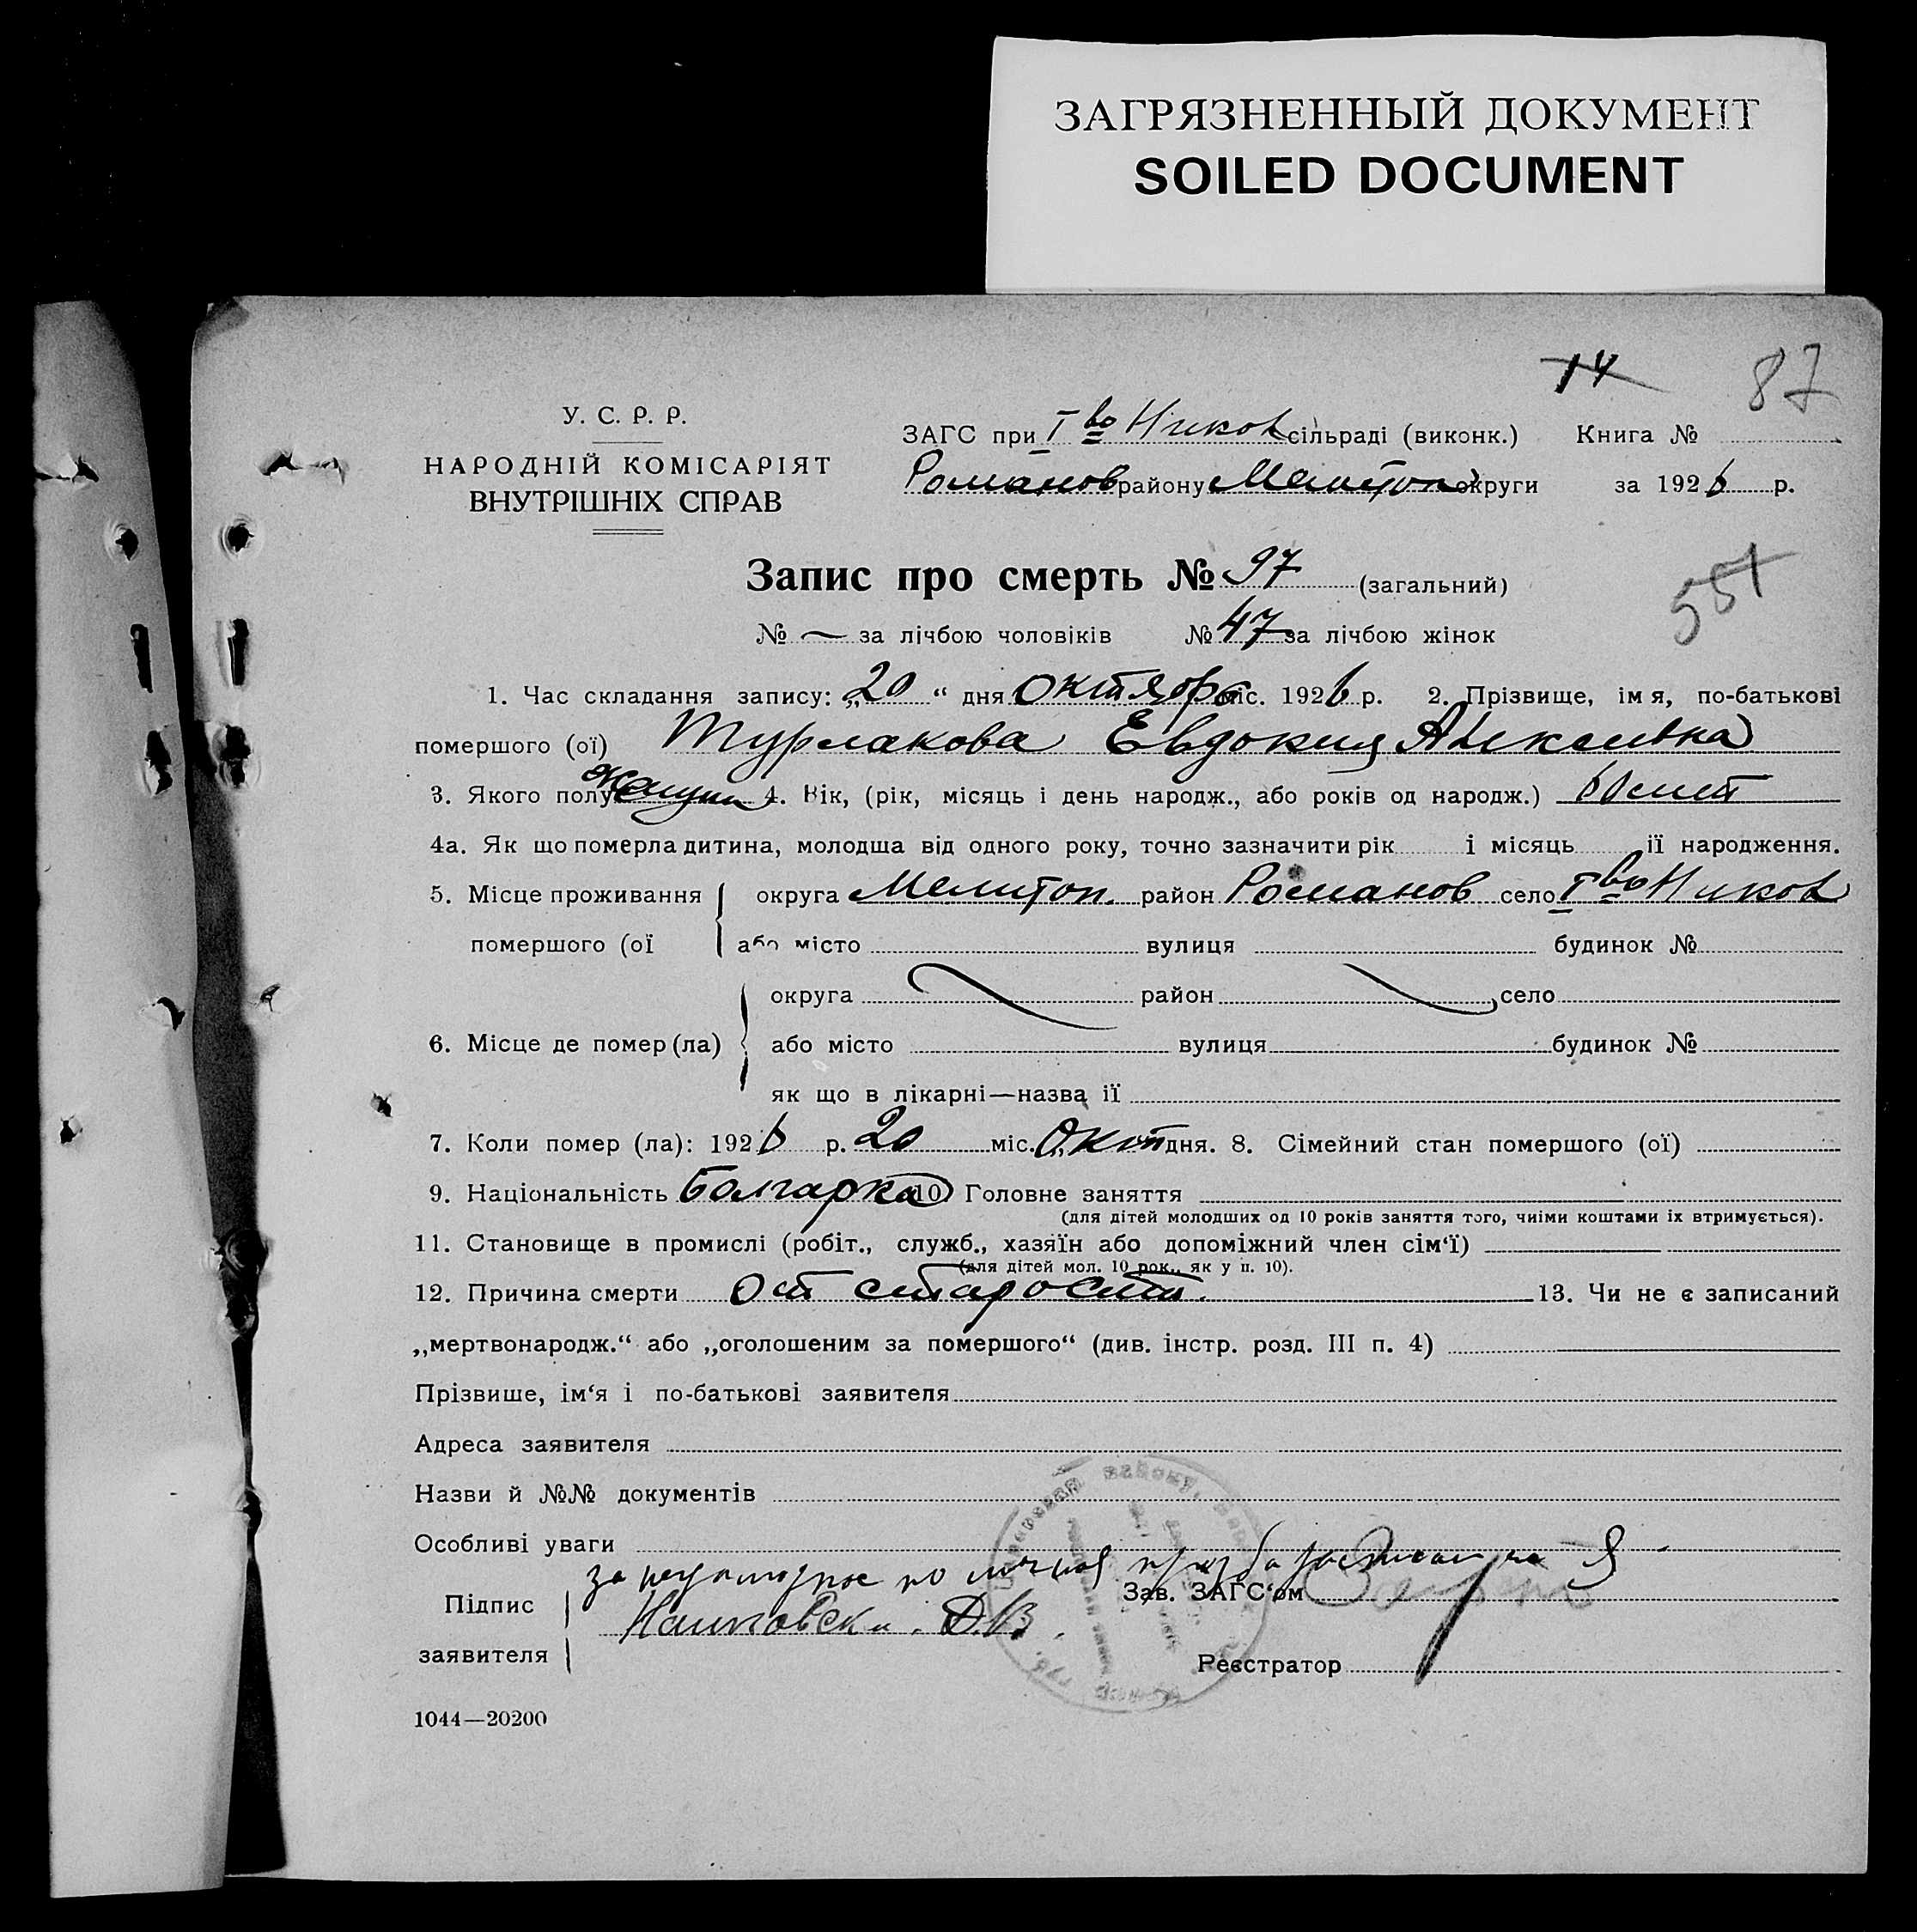 ЗАГРЯЗНЕННЫЙ ДОКУМЕНТ
SOILED DOCUMENT
14 87
У. С. Р. Р.
НАРОДНІЙ КОМІСАРІЯТ
ВНУТРІШНІХ СПРАВ
ЗАГС при І во Никол сільраді (виконк.) Книга №
Романов району Мелитоп округи за 1926 р.
Запис про смерть № 97 (загальний)
551
№ — за лічбою чоловіків № 47 за лічбою жінок
1. Час складання запису: „20“ дня октября міс. 1926 р. 2. Прізвище, імя, по-батькові
помершого (ої) Турлакова Евдокия Алексеевна
3. Якого полу 4. Вік, (рік, місяць і день народж., або років од народж.) лет
4а. Як що померла дитина, молодша від одного року, точно зазначити рік і місяць її народження.
5. Місце проживання округа Мелитоп. район Романов село І во Никол
помершого (ої або місто вулиця будинок №
округа район село
6. Місце де помер (ла) або місто вулиця будинок №
як що в лікарні—назва її
7. Коли помер (ла): 1926 р. 20 міс. Окт дня. 8. Сімейний стан помершого (ої)
9. Національність Болгарка 10 Головне заняття
(для дітей молодших од 10 років заняття того, чиїми коштами їх втримується).
11. Становище в промислі (робіт., служб., хазяїн або допоміжний член сім‘ї)
(для дітей мол. 10 рок., як у п. 10).
12. Причина смерти От старости. 13. Чи не є записаний
„мертвонародж.“ або „оголошеним за помершого“ (див. інстр. розд. III п. 4)
Прізвише, ім‘я і по-батькові заявителя
Адреса заявителя
Назви й №№ документів
Особливі уваги
за по
Підпис Зав. ЗАГС‘ом
заявителя Д.В.
Реєстратор
1044—20200